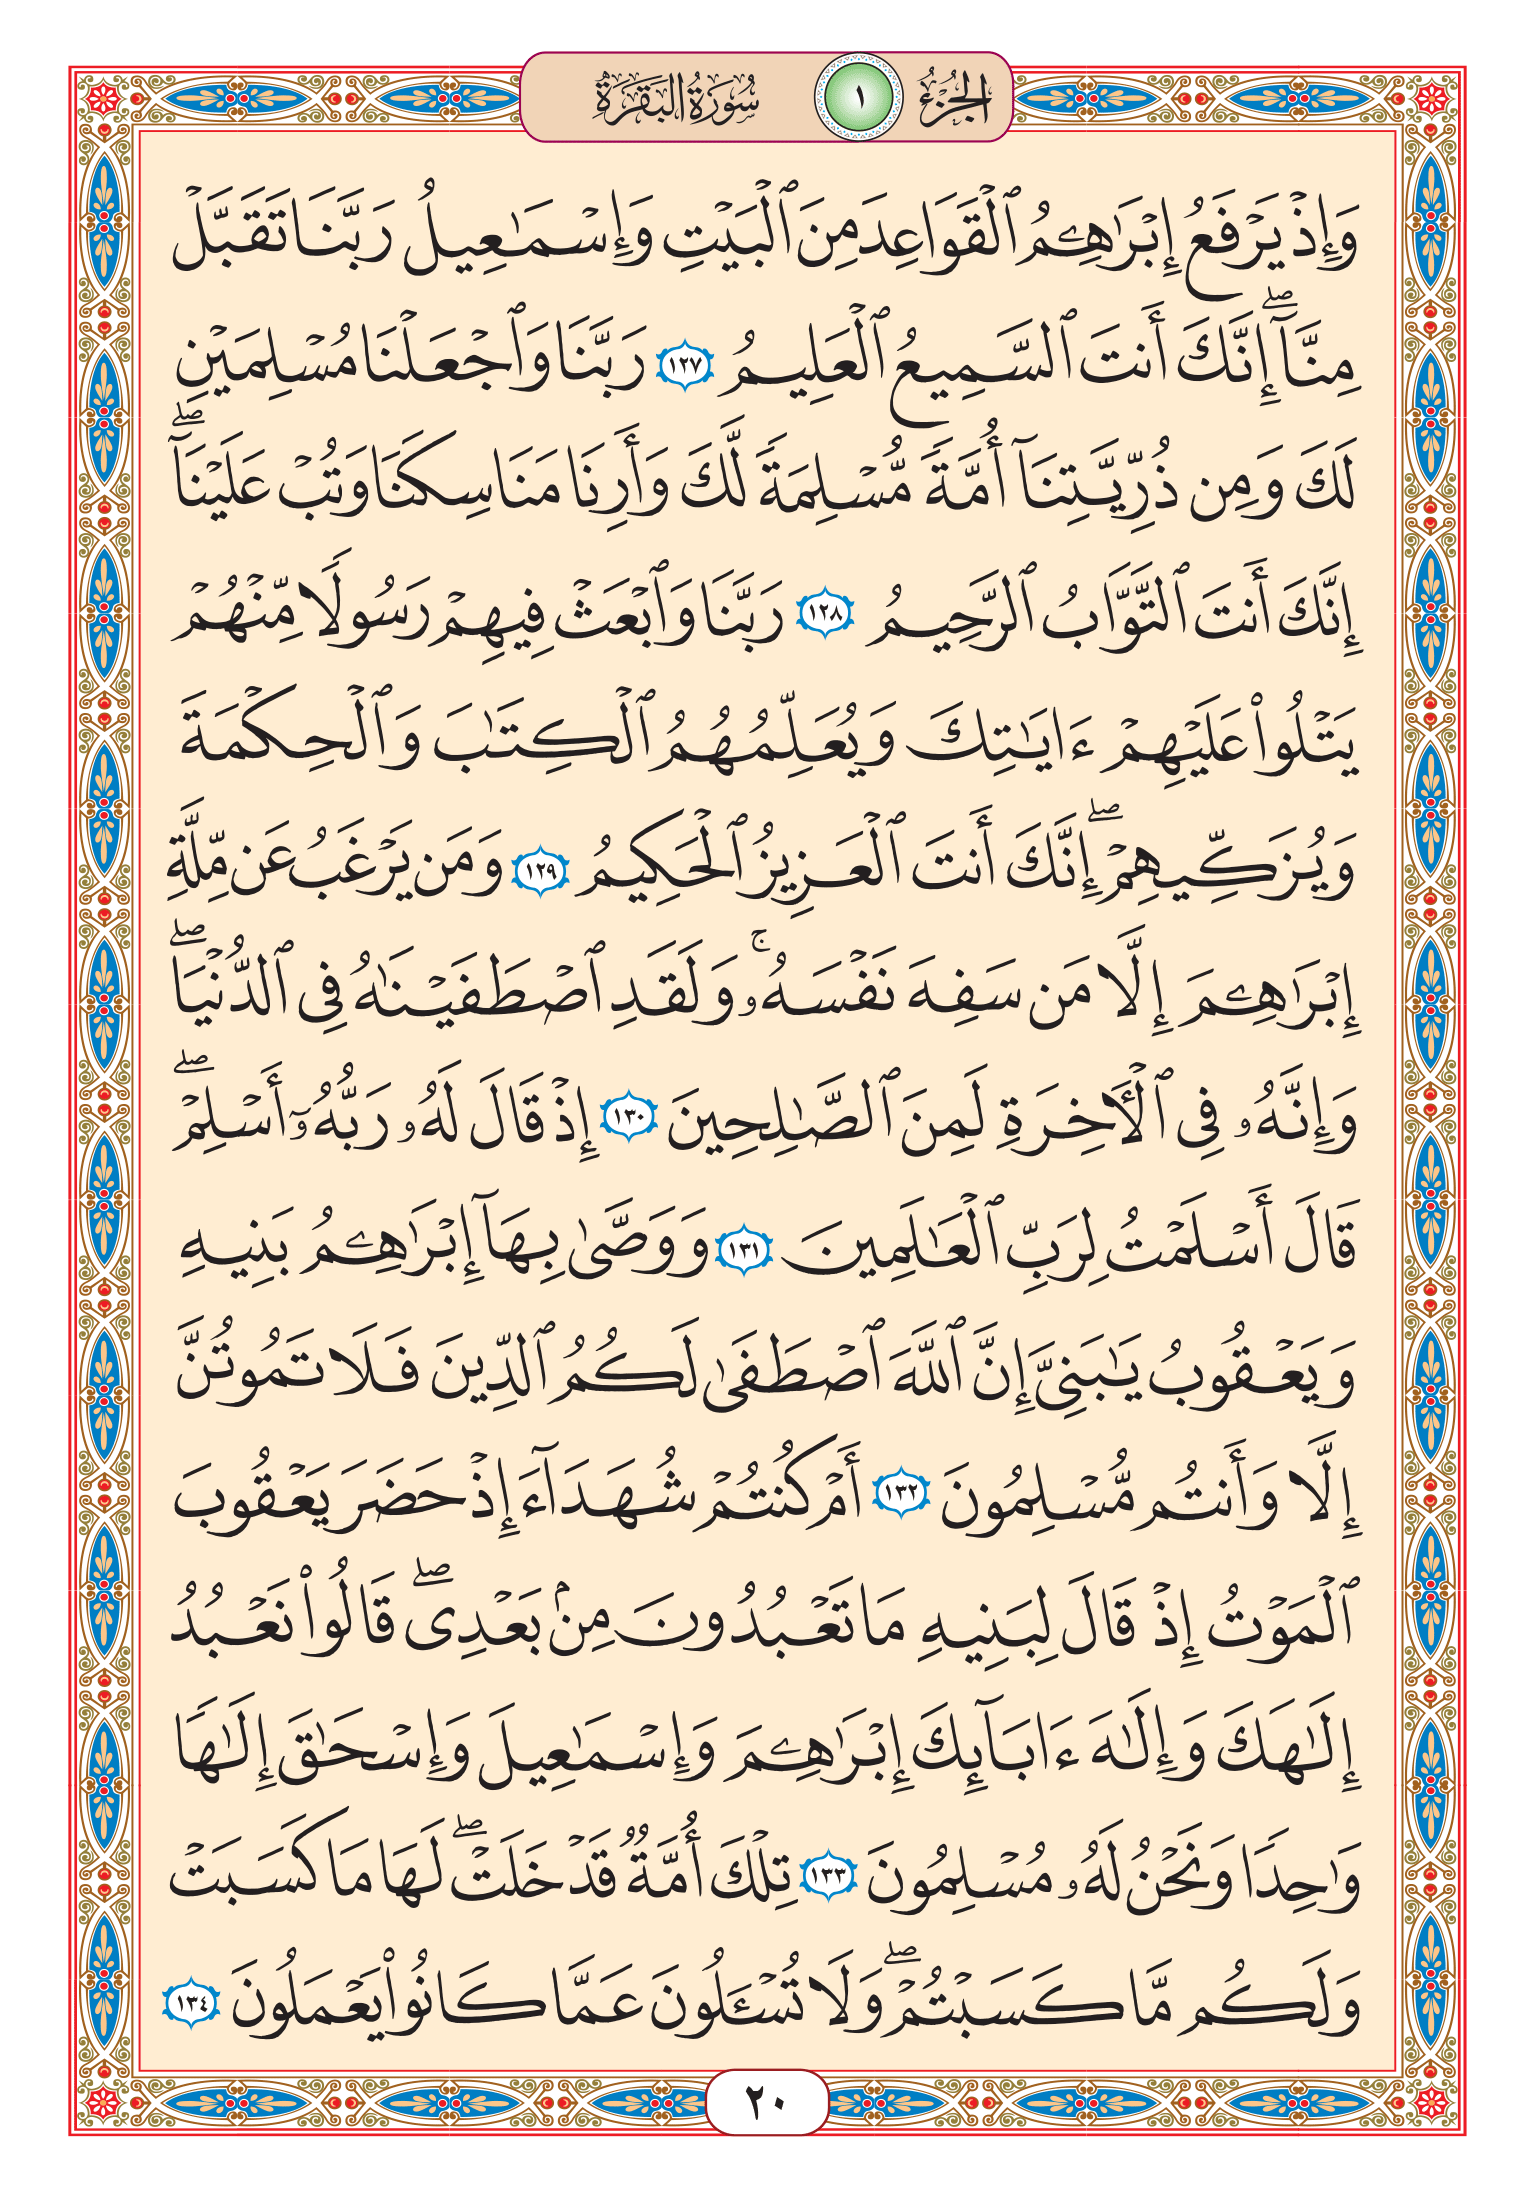 الجزء ١ سورة البقرة
وَإِذۡ يَرۡفَعُ إِبۡرَٰهِـۧمُ ٱلۡقَوَاعِدَ مِنَ ٱلۡبَيۡتِ وَإِسۡمَٰعِيلُ رَبَّنَا تَقَبَّلۡ
مِنَّآۖ إِنَّكَ أَنتَ ٱلسَّمِيعُ ٱلۡعَلِيمُ ١٢٧ رَبَّنَا وَٱجۡعَلۡنَا مُسۡلِمَيۡنِ
لَكَ وَمِن ذُرِّيَّتِنَآ أُمَّةٗ مُّسۡلِمَةٗ لَّكَ وَأَرِنَا مَنَاسِكَنَا وَتُبۡ عَلَيۡنَآۖ
إِنَّكَ أَنتَ ٱلتَّوَّابُ ٱلرَّحِيمُ ١٢٨ رَبَّنَا وَٱبۡعَثۡ فِيهِمۡ رَسُولٗا مِّنۡهُمۡ
يَتۡلُواْ عَلَيۡهِمۡ ءَايَٰتِكَ وَيُعَلِّمُهُمُ ٱلۡكِتَٰبَ وَٱلۡحِكۡمَةَ
وَيُزَكِّيهِمۡۖ إِنَّكَ أَنتَ ٱلۡعَزِيزُ ٱلۡحَكِيمُ ١٢٩ وَمَن يَرۡغَبُ عَن مِّلَّةِ
إِبۡرَٰهِـۧمَ إِلَّا مَن سَفِهَ نَفۡسَهُۥۚ وَلَقَدِ ٱصۡطَفَيۡنَٰهُ فِي ٱلدُّنۡيَاۖ
وَإِنَّهُۥ فِي ٱلۡأٓخِرَةِ لَمِنَ ٱلصَّٰلِحِينَ ١٣٠ إِذۡ قَالَ لَهُۥ رَبُّهُۥٓ أَسۡلِمۡۖ
قَالَ أَسۡلَمۡتُ لِرَبِّ ٱلۡعَٰلَمِينَ ١٣١ وَوَصَّىٰ بِهَآ إِبۡرَٰهِـۧمُ بَنِيهِ
وَيَعۡقُوبُ يَٰبَنِيَّ إِنَّ ٱللَّهَ ٱصۡطَفَىٰ لَكُمُ ٱلدِّينَ فَلَا تَمُوتُنَّ
إِلَّا وَأَنتُم مُّسۡلِمُونَ ١٣٢ أَمۡ كُنتُمۡ شُهَدَآءَ إِذۡ حَضَرَ يَعۡقُوبَ
ٱلۡمَوۡتُ إِذۡ قَالَ لِبَنِيهِ مَا تَعۡبُدُونَ مِنۢ بَعۡدِيۖ قَالُواْ نَعۡبُدُ
إِلَٰهَكَ وَإِلَٰهَ ءَابَآئِكَ إِبۡرَٰهِـۧمَ وَإِسۡمَٰعِيلَ وَإِسۡحَٰقَ إِلَٰهٗا
وَٰحِدٗا وَنَحۡنُ لَهُۥ مُسۡلِمُونَ ١٣٣ تِلۡكَ أُمَّةٞ قَدۡ خَلَتۡۖ لَهَا مَا كَسَبَتۡ
وَلَكُم مَّا كَسَبۡتُمۡۖ وَلَا تُسۡـَٔلُونَ عَمَّا كَانُواْ يَعۡمَلُونَ ١٣٤
٢٠